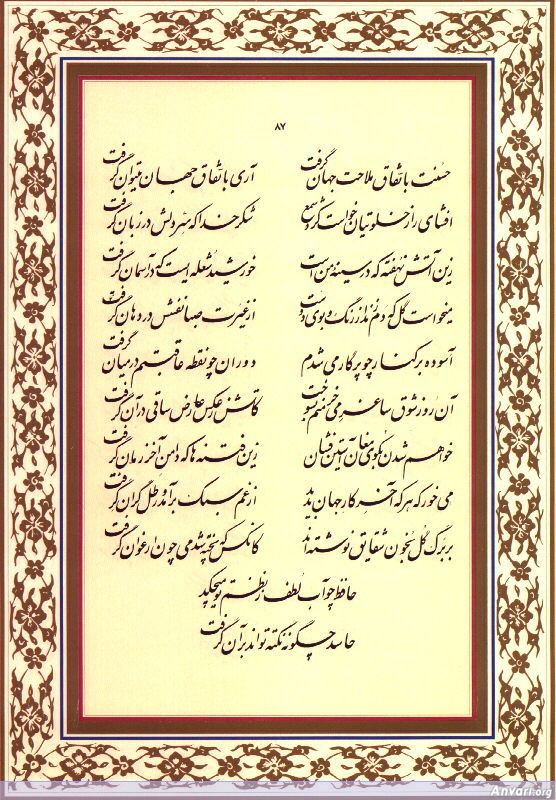 ۸۷
حسنت باتفاق ملاحت جهان گرفت آری باتفاق جهان میتوان گرفت
افشای راز خلوتیان خواست کرد شمع شکر خدا که سر دلش در زبان گرفت
زین آتش نهفته که در سینه من است خورشید شعله ایست که در آسمان گرفت
میخواست گل که دم زند از رنگ و بوی دوست از غیرت صبا نفسش در دهان گرفت
آسوده بر کنار چو پرگار می شدم دوران چو نقطه عاقبتم در میان گرفت
آن روز شوق ساغر می خرمنم بسوخت کاتش ز عکس عارض ساقی در آن گرفت
خواهم شدن بکوی مغان آستین فشان زین فتنه ها که دامن آخر زمان گرفت
می خور که هر که آخر کار جهان بدید از غم سبک برآمد و رطل گران گرفت
بر برگ گل بخون شقایق نوشته اند کانکس که پخته شد می چون ارغوان گرفت
حافظ چو آب لطف ز نظم تو میچکد
حاسد چگونه نکته تواند بر آن گرفت
AnVari.org